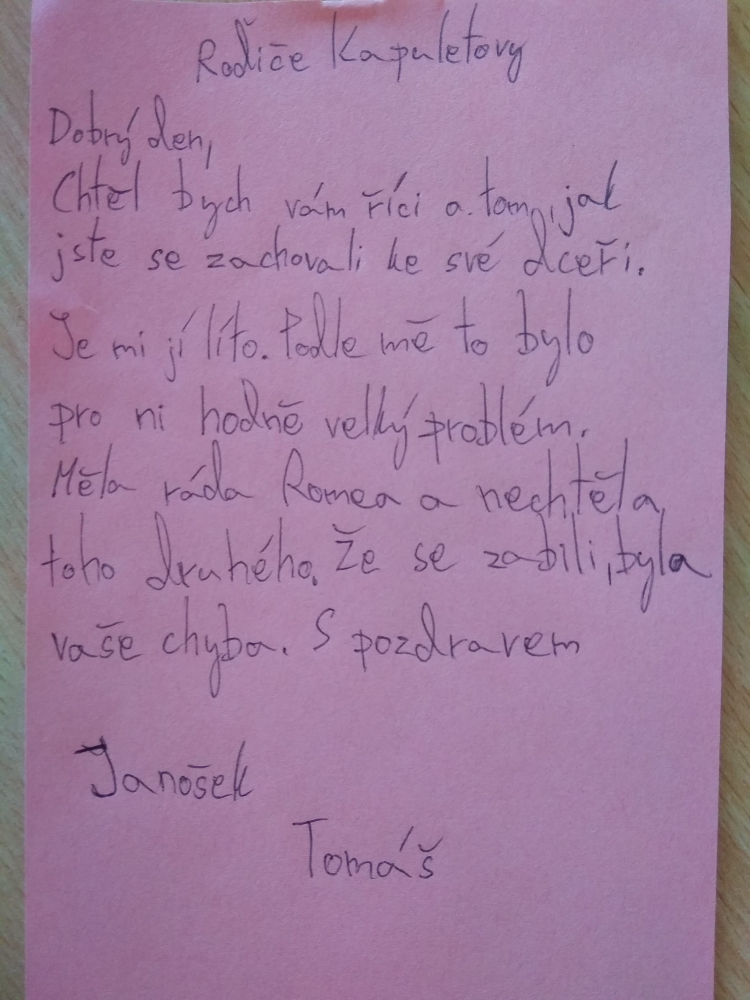 Rodiče Kapuletovy
Dobrý den,
Chtěl bych vám říci o tom, jak
jste se zachovali ke své dceři.
Je mi jí líto. Podle mě to bylo
pro ni hodně velký problém.
Měla ráda Romea a nechtěla
toho druhého. Že se zabili, byla
vaše chyba. S pozdravem
Janošek
Tomáš